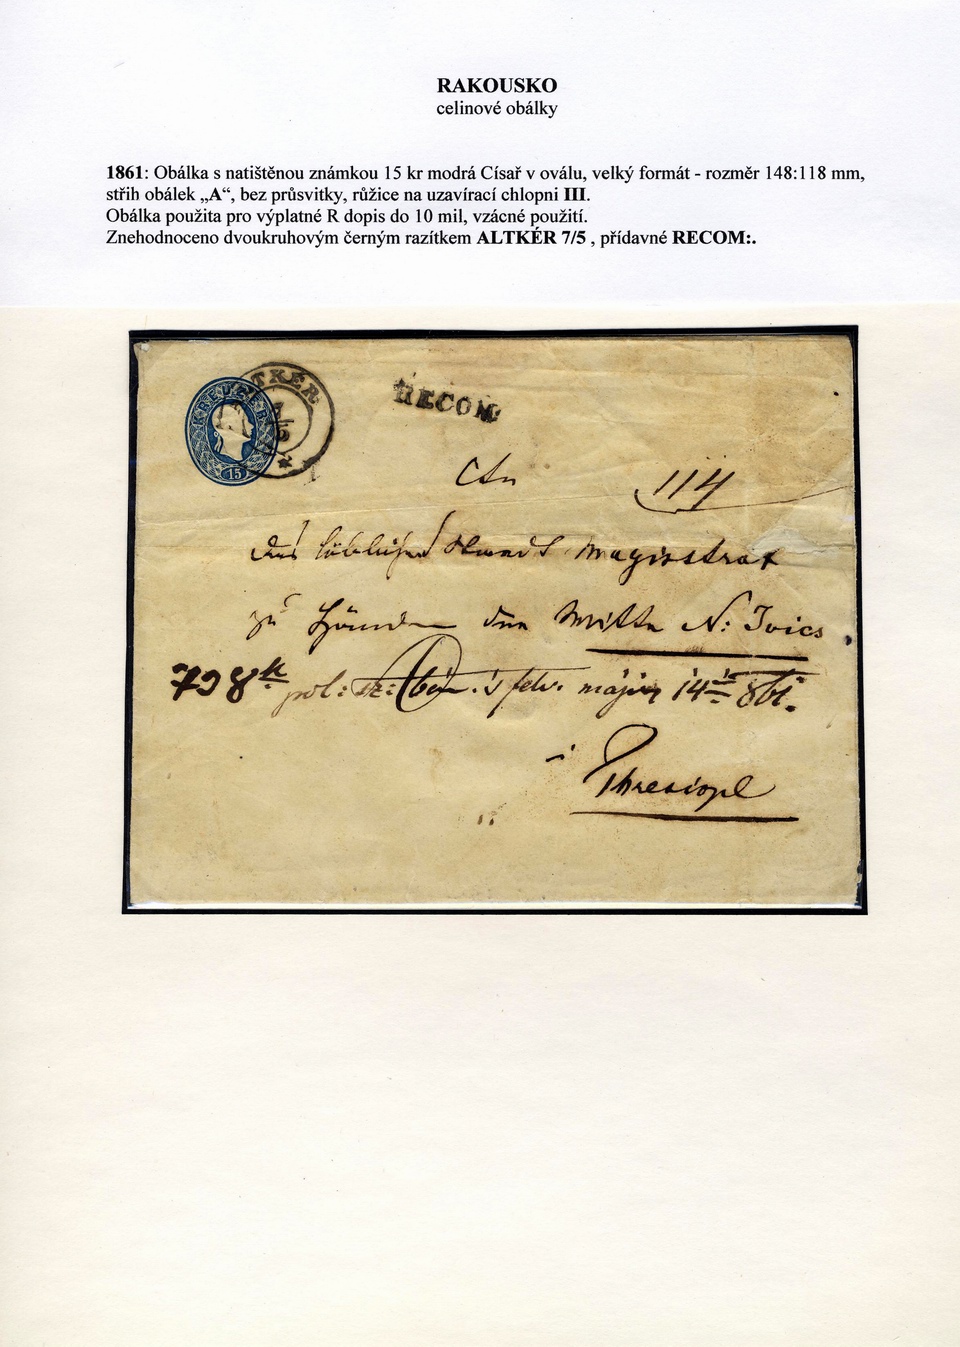 RAKOUSKO
celinové obálky
1861: Obálka s natištěnou známkou 15 kr modrá Císař v oválu, velký formát - rozměr 148:118 mm,
střih obálek „A“, bez průsvitky, růžice na uzavírací chlopni III.
Obálka použita pro výplatné R dopis do 10 mil, vzácné použití.
Znehodnoceno dvoukruhovým černým razítkem ALTKÉR 7/5 , přídavné RECOM:.
KREUZER
15
TKÉR
7/5
RECOM:
An
114
löblichen Magistrat
zu N: Ivics
798
pol: sz: 14 861.
Thresiopl